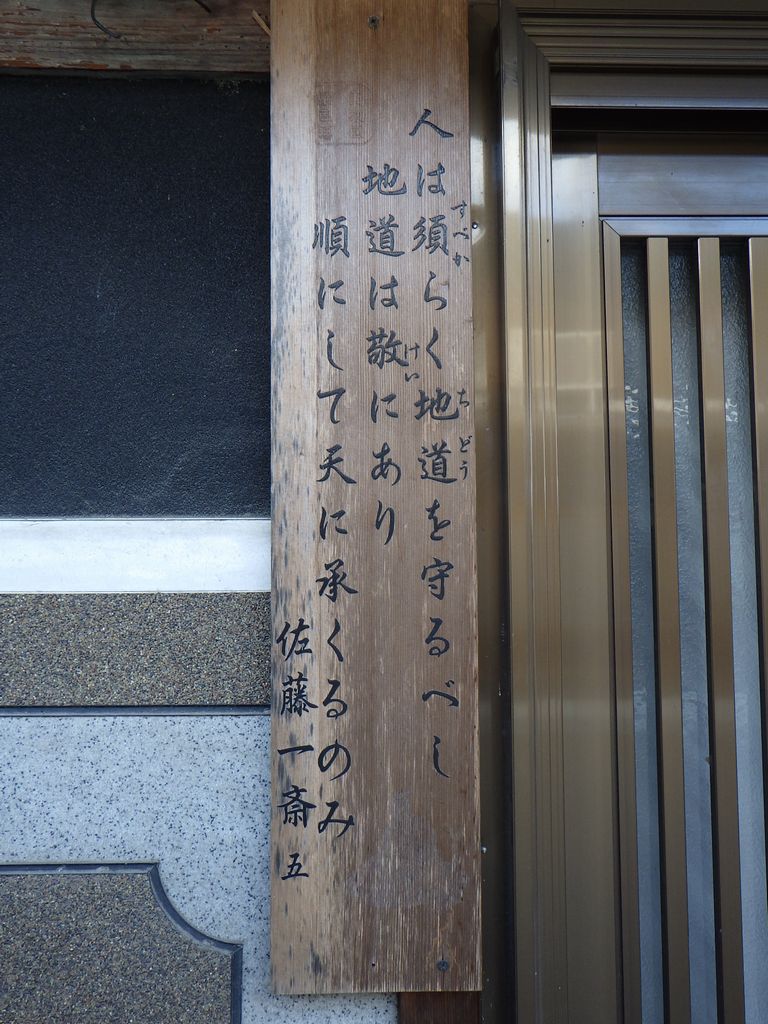 人は須らく地道を守るべし
すべか
ちどう
地道は敬にあり
けい
順にして天に承くるのみ
佐藤一斎
五